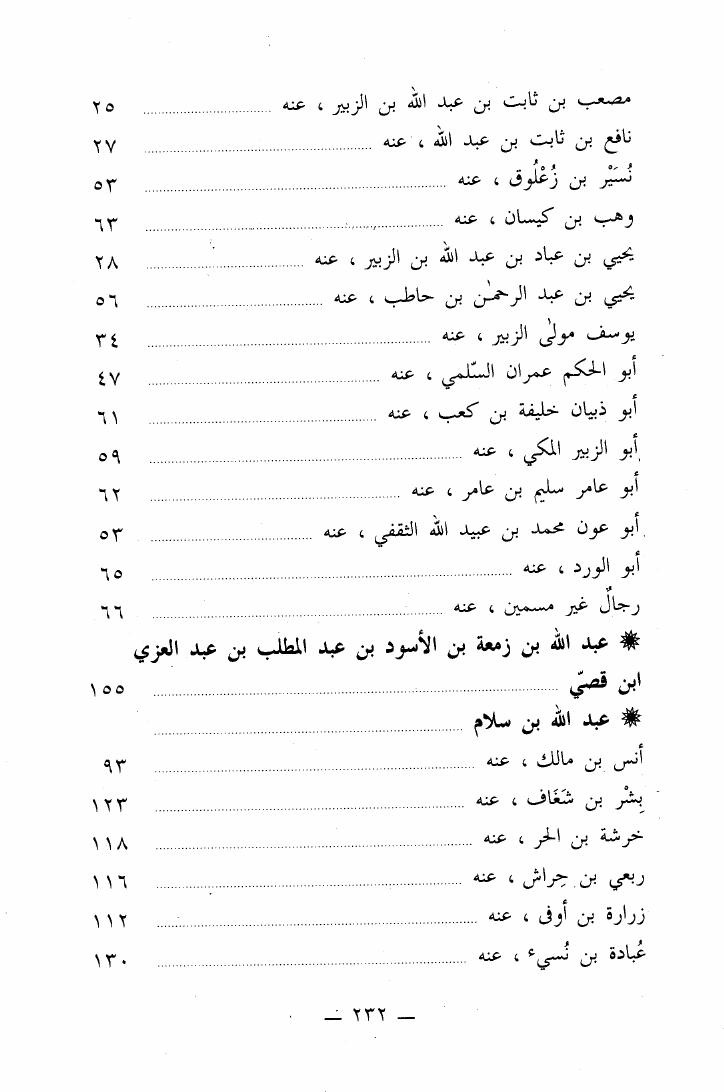 مصعب بن ثابت بن عبد الله بن الزبير ، عنه ........ ٢٥
نافع بن ثابت بن عبد الله ، عنه ........ ٢٧
نُسَيْر بن زُعْلُوق ، عنه ........ ٥٣
وهب بن كيسان ، عنه ........ ٦٣
يحيي بن عباد بن عبد الله بن الزبير ، عنه ........ ٢٨
يحيي بن عبد الرحمٰن بن حاطب ، عنه ........ ٥٦
يوسف مولىٰ الزبير ، عنه ........ ٣٤
أبو الحكم عمران السّلمي ، عنه ........ ٤٧
أبو ذبيان خليفة بن كعب ، عنه ........ ٦١
أبو الزبير المكي ، عنه ........ ٥٩
أبو عامر سليم بن عامر ، عنه ........ ٦٢
أبو عون محمد بن عبيد الله الثقفي ، عنه ........ ٥٣
أبو الورد ، عنه ........ ٦٥
رجالٌ غير مسمين ، عنه ........ ٦٦
✺ عبد الله بن زمعة بن الأسود بن عبد المطلب بن عبد العزي
ابن قصيّ ........ ١٥٥
✺ عبد الله بن سلام ........
أنس بن مالك ، عنه ........ ٩٣
بِشْر بن شَغَاف ، عنه ........ ١٢٣
خرشة بن الحر ، عنه ........ ١١٨
ربعي بن حِراش ، عنه ........ ١١٦
زرارة بن أوفى ، عنه ........ ١١٢
عُبادة بن نُسيء ، عنه ........ ١٣٠
— ٢٣٢ —